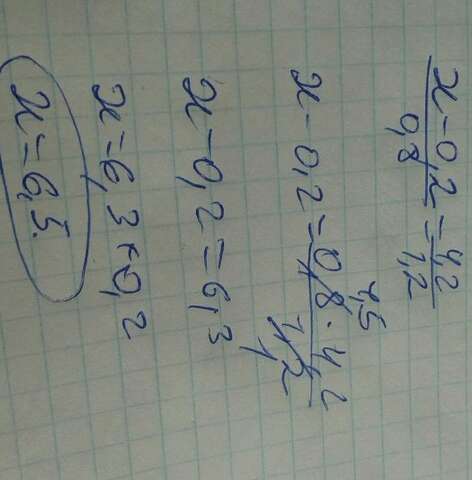 x-0,2/0,8 = 4,2/1,2
x-0,2 = 0,8·4,2/1,2
x-0,2=6,3
x=6,3+0,2
x=6,5.